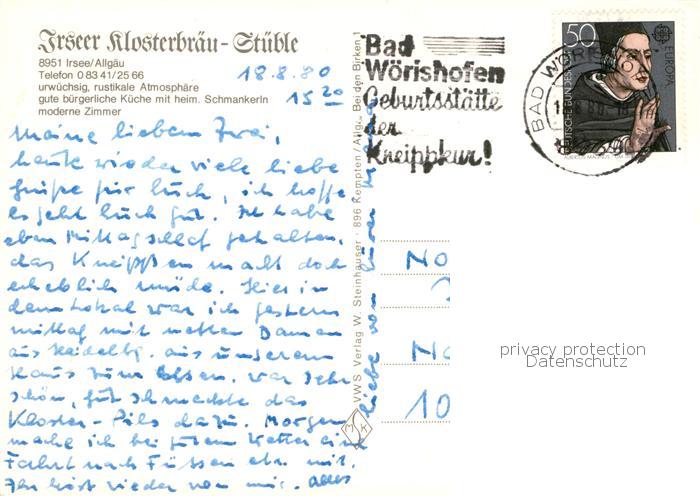 Irseer Klosterbräu-Stüble
8951 Irsee/Allgäu
Telefon 0 83 41/25 66
urwüchsig, rustikale Atmosphäre
gute bürgerliche Küche mit heim. Schmankerln
moderne Zimmer
18.8.80
15 20
Meine lieben Zwei,
heute wieder viele liebe
Grüße für Euch, ich hoffe
es geht Euch gut. Ich habe
eben Mittagschlaf gehalten,
das Kneippen macht doch
erheblich müde. Hier in
dem Lokal war ich gestern
mittag mit netten Damen
aus Heidelbg. aus unserem
Haus zum Essen. War sehr
schön, gut schmeckte das
Kloster-Pils dazu. Morgen
mache ich bei gutem Wetter eine
Fahrt nach Füssen etc. mit.
Ihr hört wieder von mir. Alles
liebe von Eurer
VWS Verlag W. Steinhauser · 896 Kempten / Allg. Bei den Birken 1
Bad
Wörishofen
Geburtsstätte
der
Kneippkur!
BAD WÖRIS
50
EUROPA
DEUTSCHE BUNDESPOST
ALBERTUS MAGNUS
No
10
privacy protection
Datenschutz